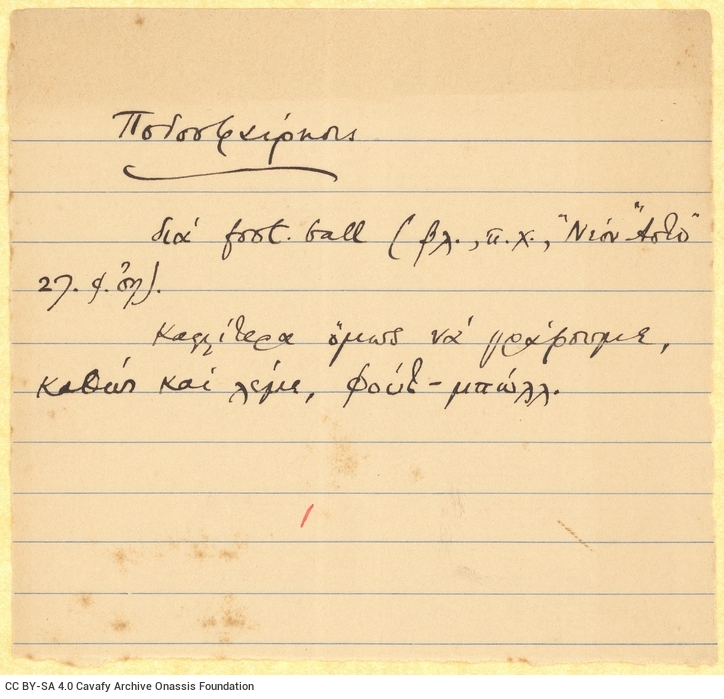 Ποδοσφαίρησις
διά foot.ball (βλ., π.χ., "Νέον Ἄστυ"
27.
Καλλίτερα ὅμως νά γράφουμε,
καθώς καί λέμε, φούτ-μπώλλ.
CC BY-SA 4.0 Cavafy Archive Onassis Foundation